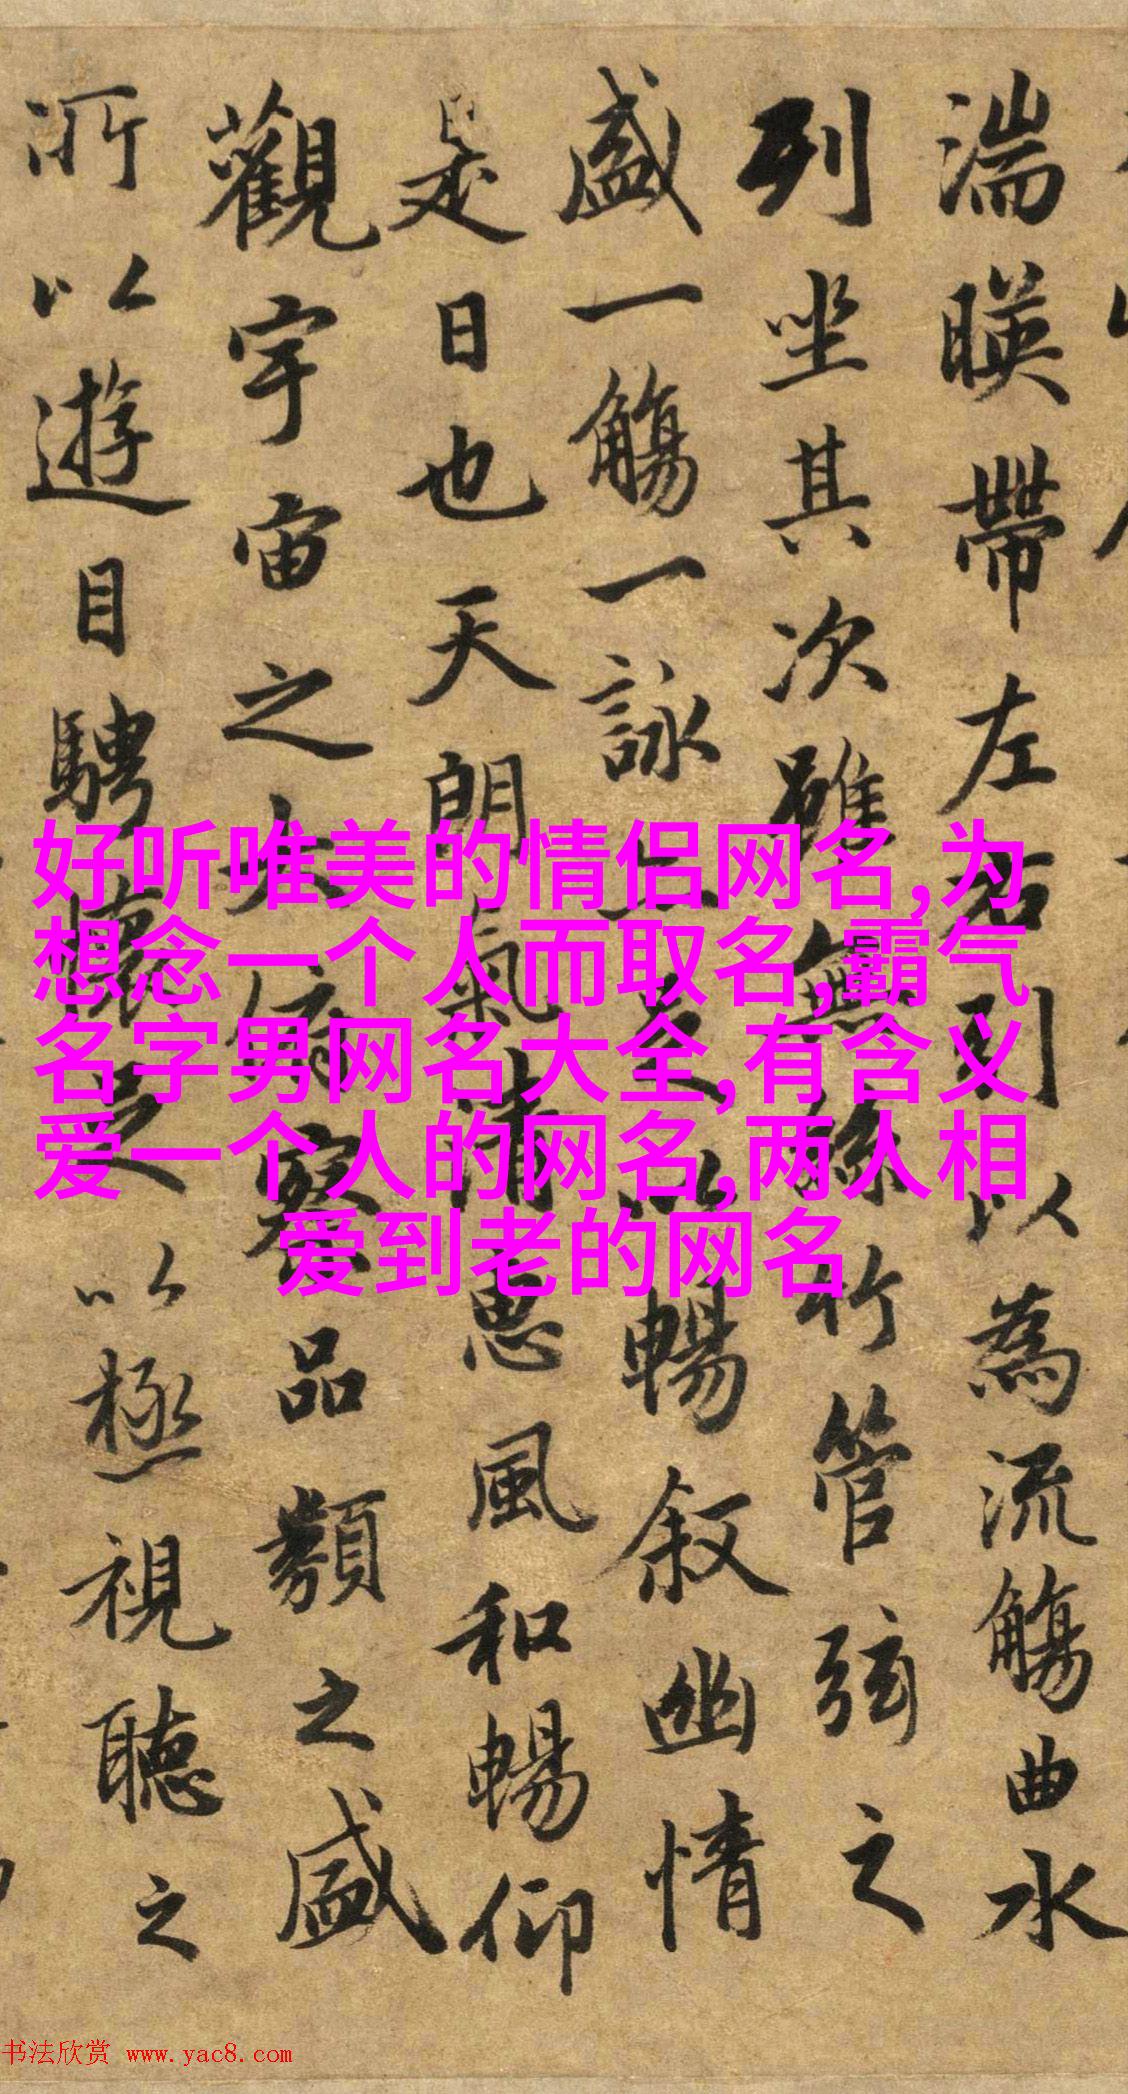 湍暎帶左右引以為流觴曲水
列坐其次雖無絲竹管弦之
盛一觴一詠亦足以暢叙幽情
是日也天朗氣清惠風和暢仰
觀宇宙之大俯察品類之盛
所以遊目騁懷足以極視聽之
好听唯美的情侣网名,为
想念一个人而取名,霸气
名字男网名大全,有含义
爱一个人的网名,两人相
爱到老的网名
书法欣赏 www.yac8.com